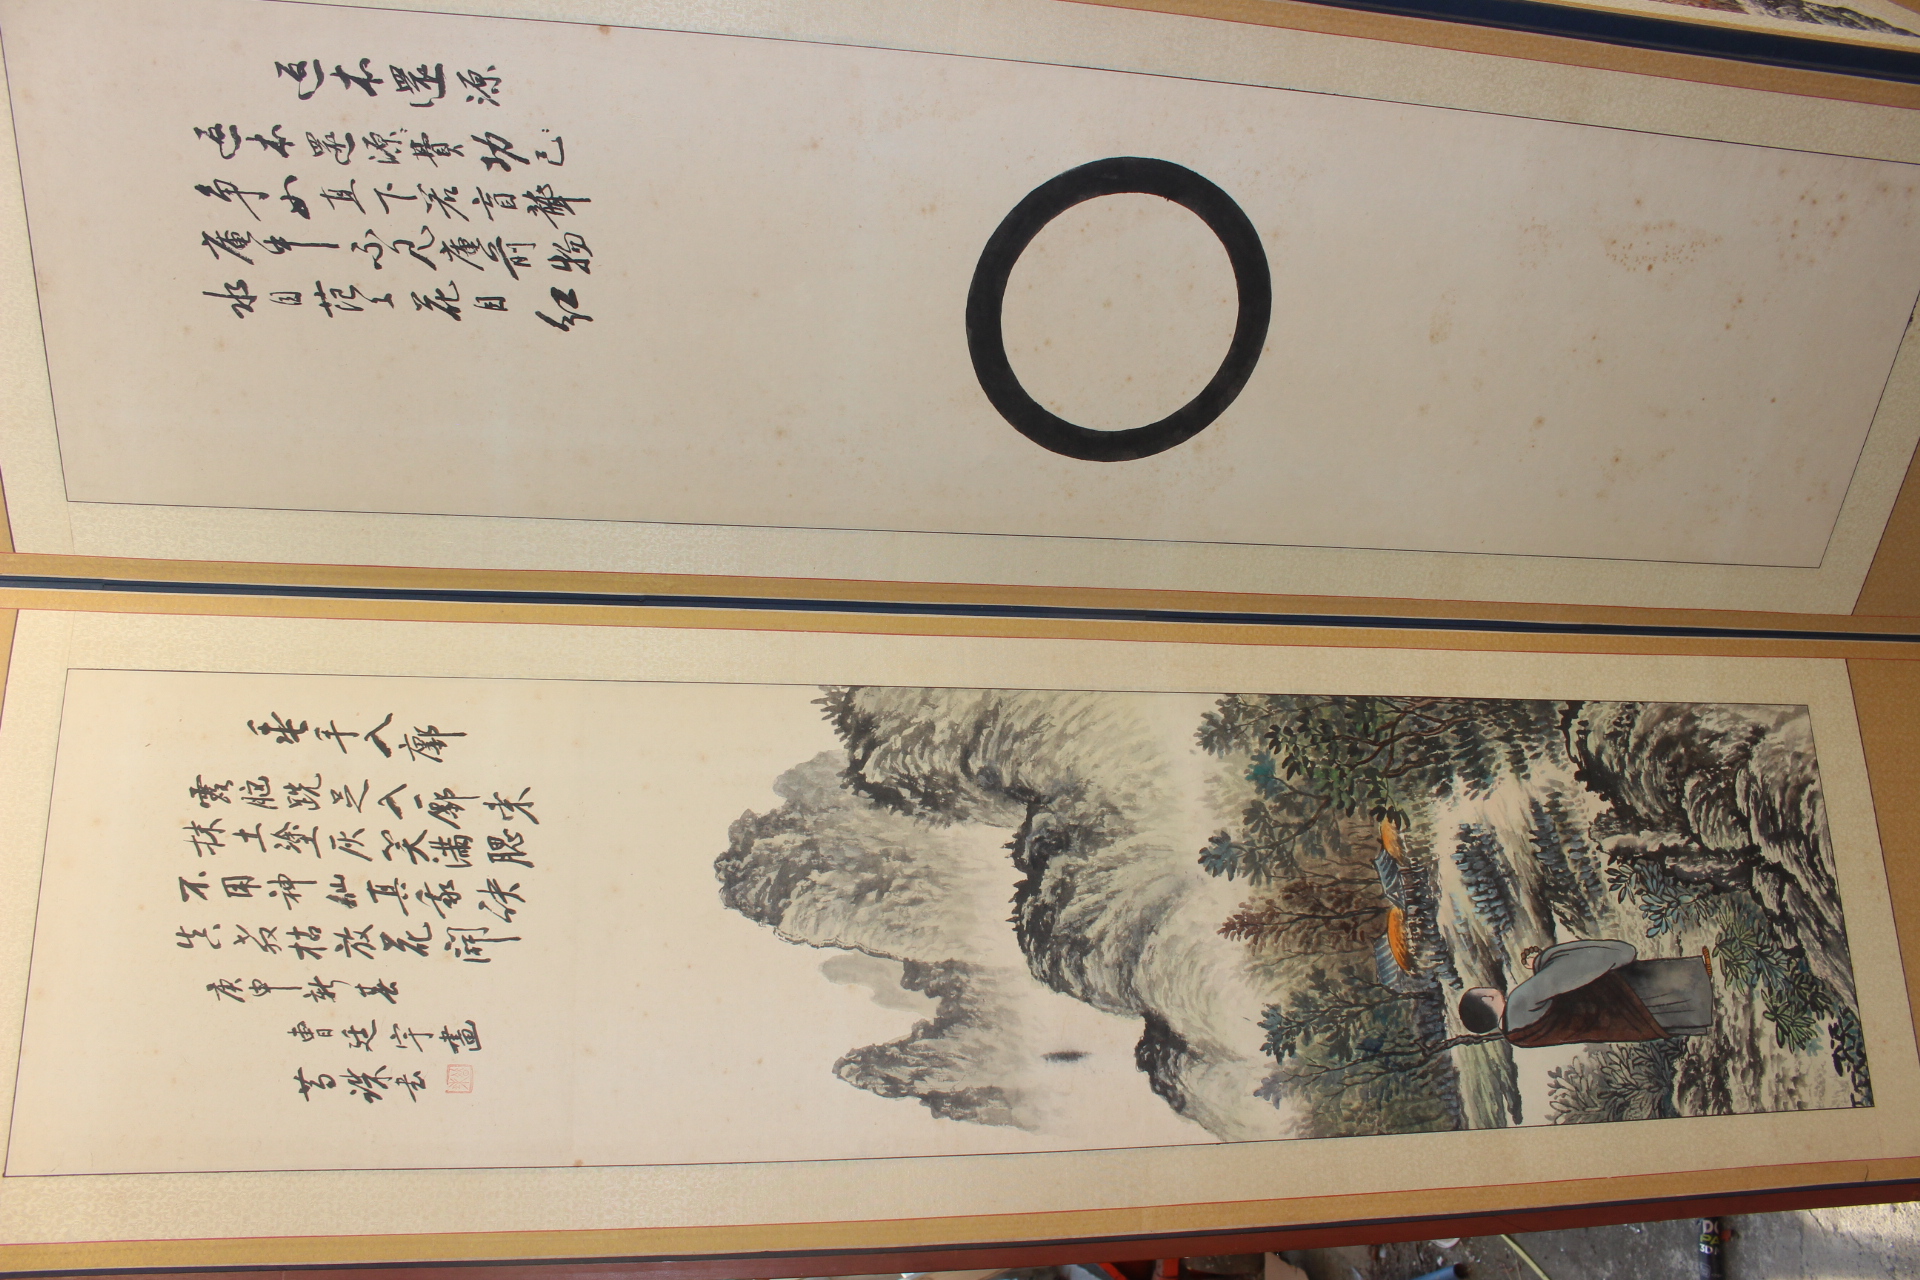 返本還源
返本還源費功已
争如直下若盲聾
庵中不見庵前物
水自茫々花自紅
垂手入鄽
露胸跣足入鄽来
抹土塗灰笑満腮
不用神仙真秘訣
教枯放花開
庚申新春
曹廷宇畫